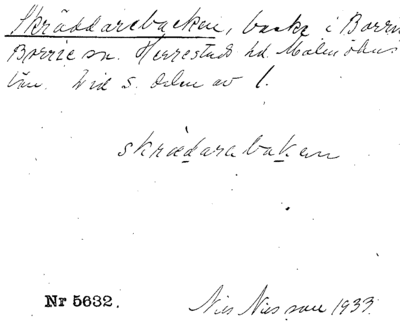 Skräddarebacken, backe i Borrie
Borrie sn. Herrestads hd. Malmöhus
län. Vid s. delen av 1.
skrædarabakan
Nr 5632.
Nils Nilsson 1933.